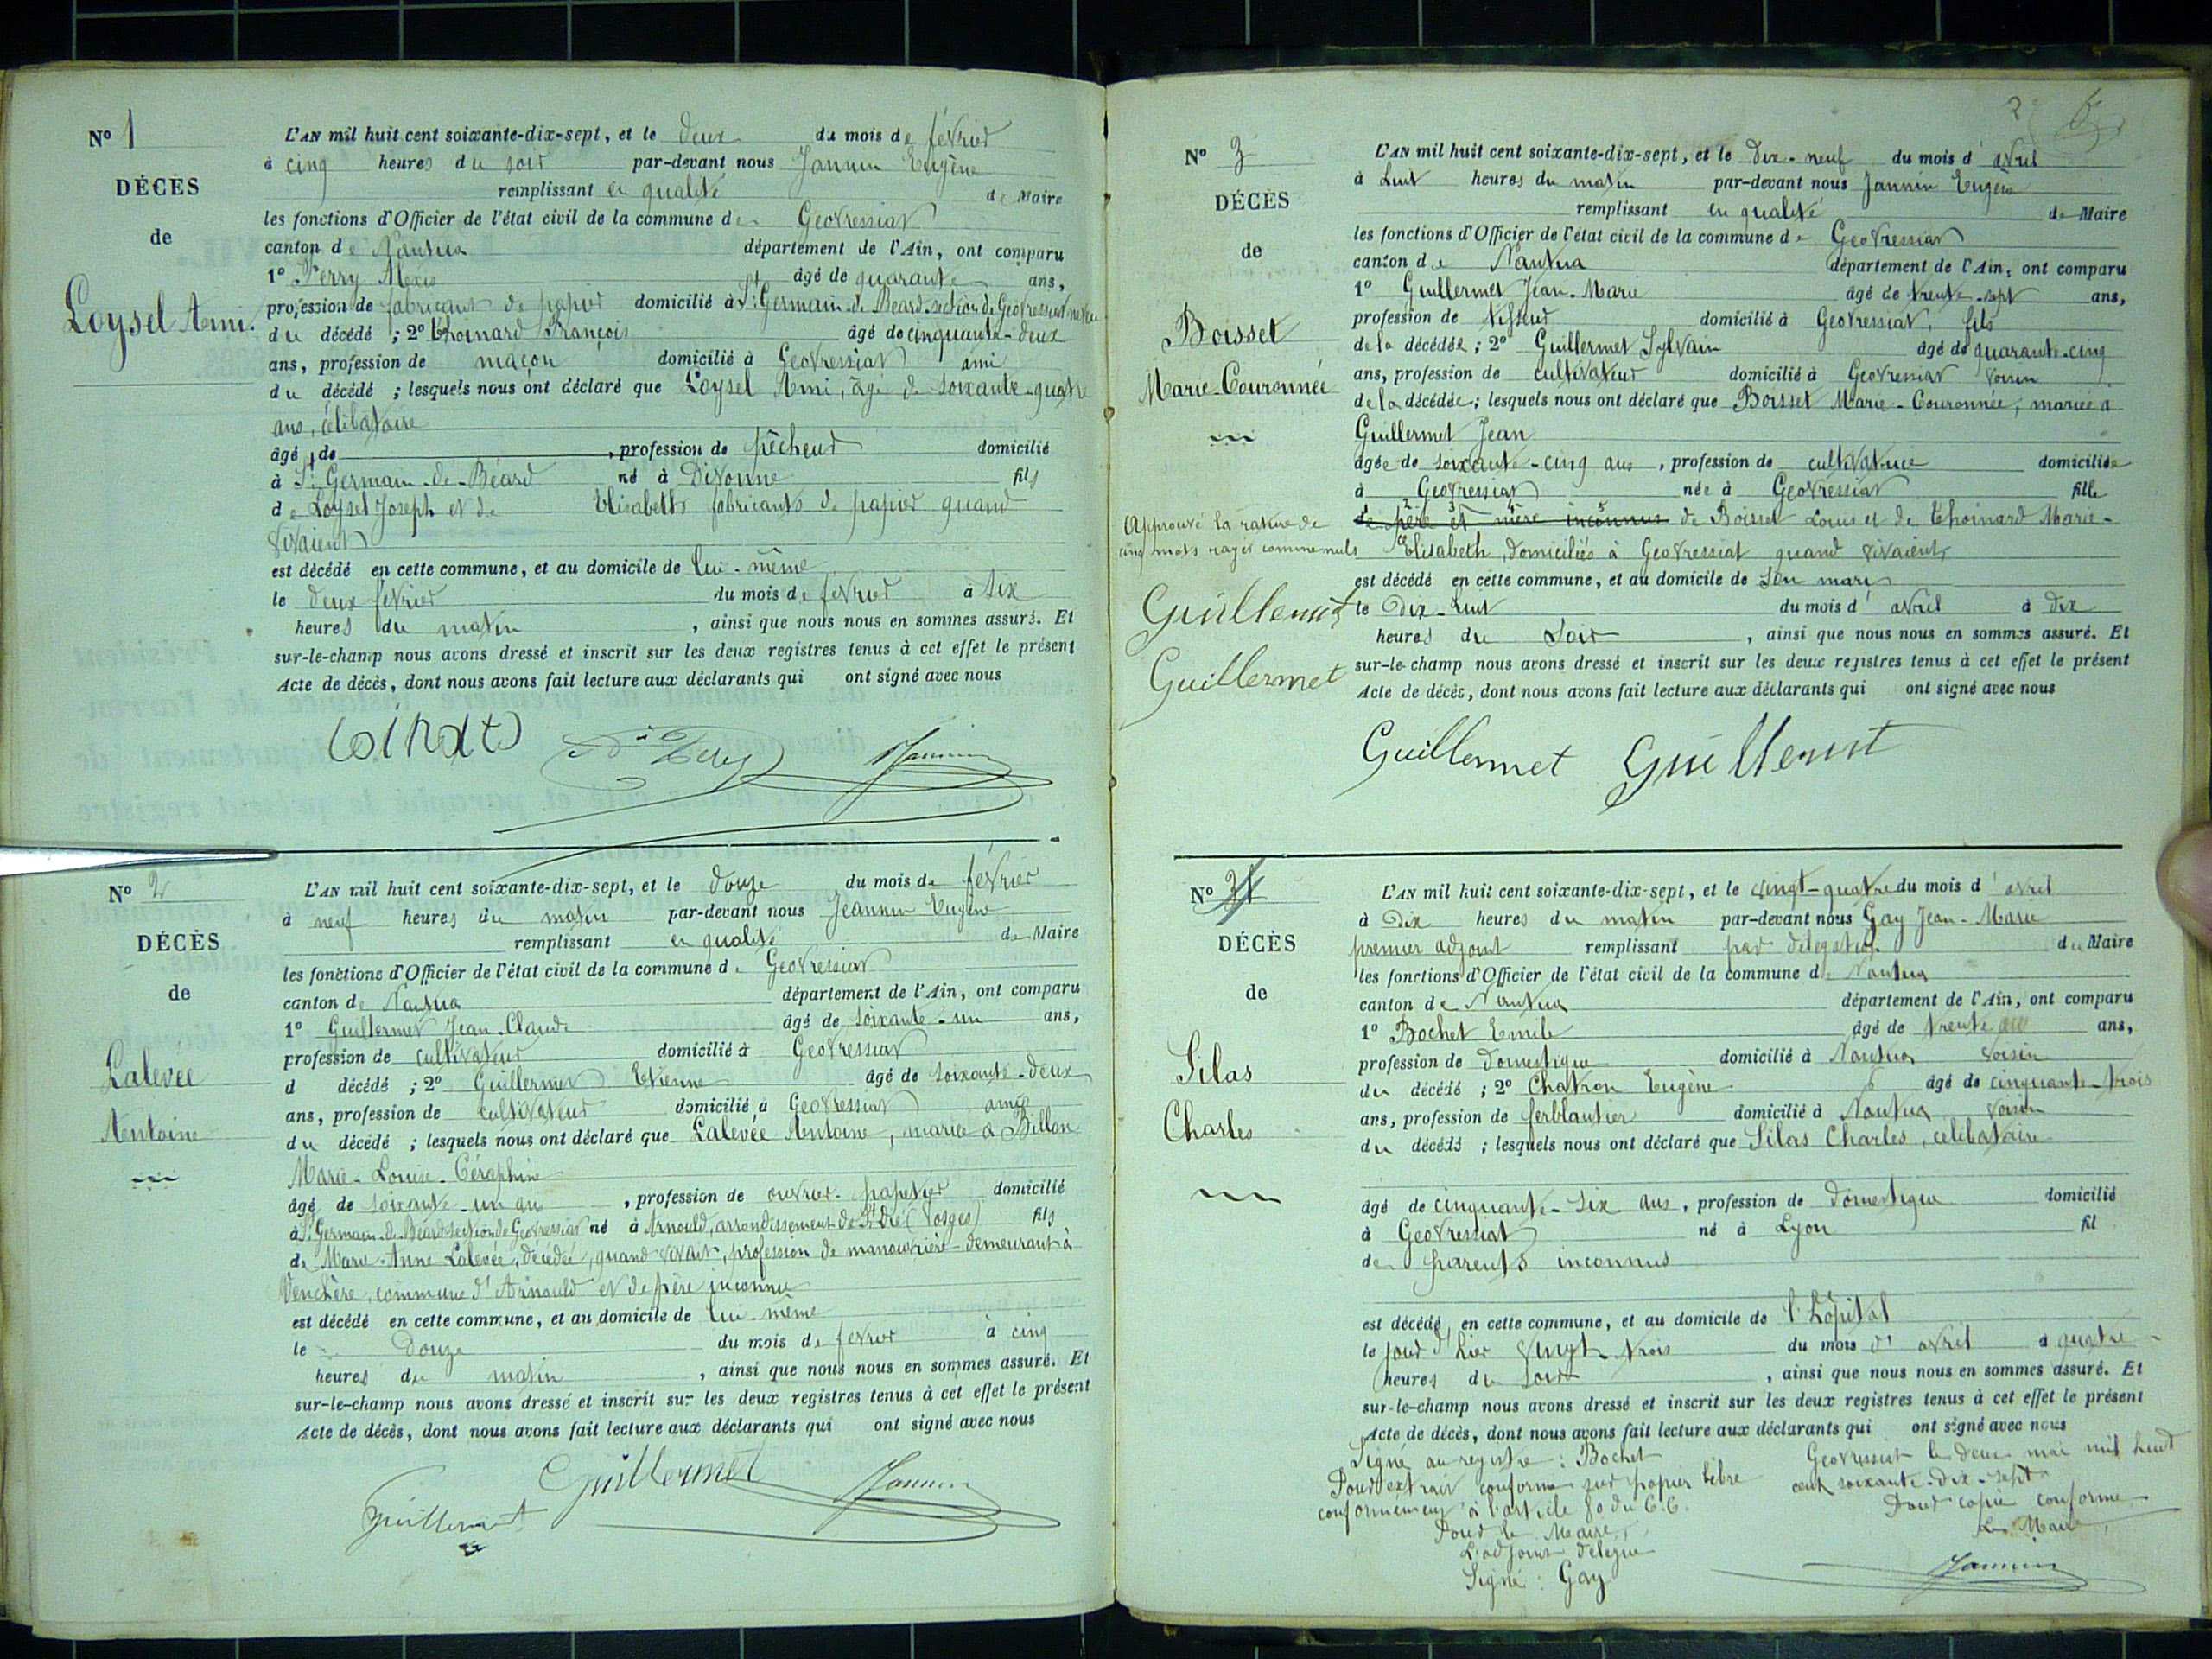 N° 1
DÉCÈS
de
Loysel Ami.
L'AN mil huit cent soixante-dix-sept, et le deux du mois de février
à cinq heures du soir par-devant nous Jannin Eugène
remplissant en qualité de Maire
les fonctions d'Officier de l'état civil de la commune de Géovressiat
canton de Nantua département de l'Ain, ont comparu
1° Perry Alexis âgé de quarante ans,
profession de fabricant de papier domicilié à St Germain-de-Béard-section de Géovressiat neveu
du décédé ; 2° Thoinard François âgé de cinquante-deux
ans, profession de maçon domicilié à Géovressiat ami
du décédé ; lesquels nous ont déclaré que Loysel Ami, âgé de soixante-quatre
ans, célibataire
âgé de , profession de pêcheur domicilié
à St Germain-de-Béard né à Divonne fils
de Loysel Joseph et de Elisabeth fabricants de papier quand
vivaient
est décédé en cette commune, et au domicile de lui-même
le deux février du mois de février à six
heures du matin , ainsi que nous nous en sommes assuré. Et
sur-le-champ nous avons dressé et inscrit sur les deux registres tenus à cet effet le présent
Acte de décès, dont nous avons fait lecture aux déclarants qui ont signé avec nous
Jannin
N° 2
DÉCÈS
de
Lalevée
Antoine
L'AN mil huit cent soixante-dix-sept, et le douze du mois de février
à neuf heures du matin par-devant nous Jeannin Eugène
remplissant en qualité de Maire
les fonctions d'Officier de l'état civil de la commune de Géovressiat
canton de Nantua département de l'Ain, ont comparu
1° Guillermet Jean-Claude âgé de soixante-un ans,
profession de cultivateur domicilié à Géovressiat
d décédé ; 2° Guillermet Etienne âgé de soixante-deux
ans, profession de cultivateur domicilié à Géovressiat amis
du décédé ; lesquels nous ont déclaré que Lalevée Antoine, marié à Billon
Marie-Louise-Céraphine
âgé de soixante-un ans , profession de ouvrier-papetier domicilié
à St Germain-de-Béard section de Géovressiat né à Arnould, arrondissement de St Dié (Vosges) fils
de Marie-Anne Lalevée, décédée, quand vivait, profession de manouvrière-demeurant à
Venchère, commune d'Arnould et de père inconnu
est décédé en cette commune, et au domicile de lui-même
le Douze du mois de février à cinq
heures du matin , ainsi que nous nous en sommes assuré. Et
sur-le-champ nous avons dressé et inscrit sur les deux registres tenus à cet effet le présent
Acte de décès, dont nous avons fait lecture aux déclarants qui ont signé avec nous
Guillermet Guillermet Jannin
2
N° 3
DÉCÈS
de
Boisset
Marie-Couronnée
Approuvé la rature de
cinq mots rayés comme nuls
Guillermet
Guillermet
L'AN mil huit cent soixante-dix-sept, et le dix-neuf du mois d'avril
à huit heures du matin par-devant nous Jannin Eugène
remplissant en qualité de Maire
les fonctions d'Officier de l'état civil de la commune de Géovressiat
canton de Nantua département de l'Ain, ont comparu
1° Guillermet Jean-Marie âgé de trente-sept ans,
profession de tisseur domicilié à Géovressiat, fils
de la décédée ; 2° Guillermet Sylvain âgé de quarante-cinq
ans, profession de cultivateur domicilié à Géovressiat voisin
de la décédée ; lesquels nous ont déclaré que Boisset Marie-Couronnée, mariée à
Guillermet Jean
âgée de soixante-cinq ans , profession de cultivatrice domiciliée
à Géovressiat née à Géovressiat fille
de père et mère inconnus de Boisset Louis et de Thoinard Marie-
Elisabeth, domiciliés à Géovressiat quand vivaient
est décédé en cette commune, et au domicile de son mari
le Dix-huit du mois d'avril à dix
heures du soir , ainsi que nous nous en sommes assuré. Et
sur-le-champ nous avons dressé et inscrit sur les deux registres tenus à cet effet le présent
Acte de décès, dont nous avons fait lecture aux déclarants qui ont signé avec nous
Guillermet Guillermet
N°
DÉCÈS
de
Silas
Charles
L'AN mil huit cent soixante-dix-sept, et le vingt-quatre du mois d'avril
à Dix heures du matin par-devant nous Gay Jean-Marie
premier adjoint remplissant par délégation du Maire
les fonctions d'Officier de l'état civil de la commune de Nantua
canton de Nantua département de l'Ain, ont comparu
1° Bochet Emile âgé de trente ans,
profession de domestique domicilié à Nantua voisin
du décédé ; 2° Chatron Eugène âgé de cinquante-trois
ans, profession de ferblantier domicilié à Nantua voisin
du décédé ; lesquels nous ont déclaré que Silas Charles, célibataire
âgé de cinquante-six ans, profession de domestique domicilié
à Géovressiat né à Lyon fil
de parents inconnus
est décédé en cette commune, et au domicile de l'hôpital
le jour d'hier vingt-trois du mois d'avril à quatre
heures du soir , ainsi que nous nous en sommes assuré. Et
sur-le-champ nous avons dressé et inscrit sur les deux registres tenus à cet effet le présent
Acte de décès, dont nous avons fait lecture aux déclarants qui ont signé avec nous
Signé au registre : Bochet
Pour extrait conforme sur papier libre
conformément à l'article 80 du C.C.
Pour le Maire,
L'adjoint délégué
Signé : Gay
Géovressiat le deux mai mil huit
cent soixante-dix-sept
Pour copie conforme
Le Maire,
Jannin